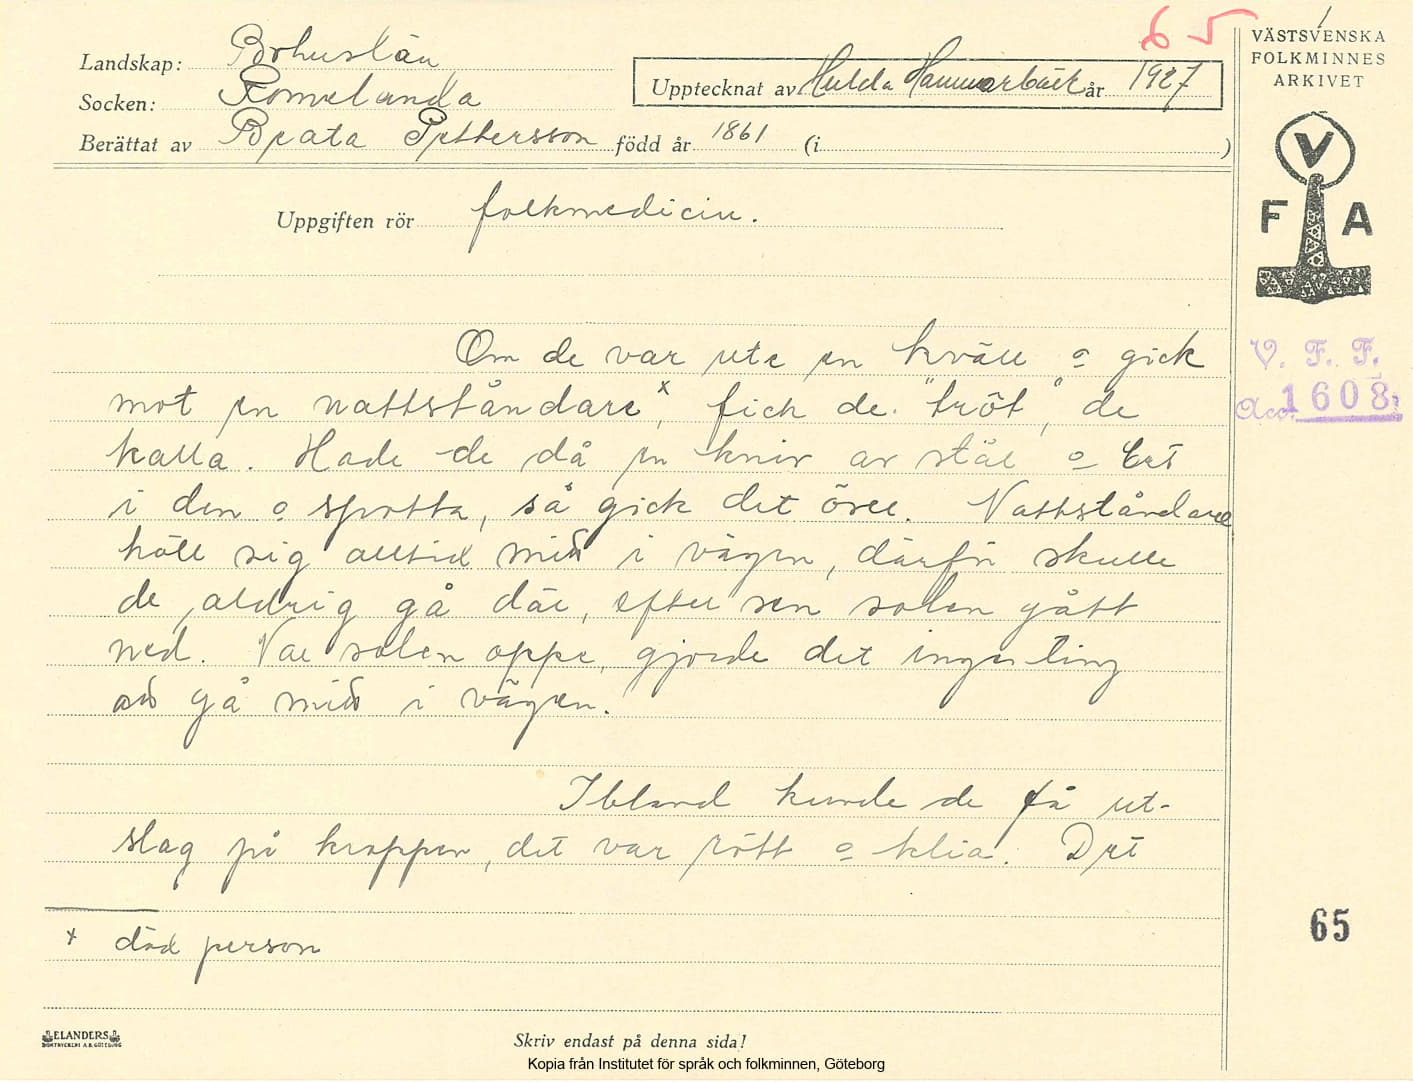 65
VÄSTSVENSKA
FOLKMINNES
ARKIVET
Landskap: Bohuslän
Socken: Romelanda
Upptecknat av Hulda Hammarbäck år 1927
Berättat av Beata Pettersson född år 1861 (i )
Uppgiften rör folkmedicin.
V
F A
Om de var ute en kväll o gick
mot en nattståndare x, fick de "tröt", de
kalla. Hade de då en kniv av stål o bet
i den o spotta, så gick det över. Nattståndare
höll sig alltid mitt i vägen, därför skulle
de aldrig gå där, efter sen solen gått
ned. Var solen oppe, gjorde det ingenting
att gå mitt i vägen.
V. F. F.
Acc. 1608
Ibland kunde de få ut-
slag på kroppen, det var rött o klia. Det
x död person
65
ELANDERS
BOKTRYCKERI A.B. GÖTEBORG
Skriv endast på denna sida!
Kopia från Institutet för språk och folkminnen, Göteborg